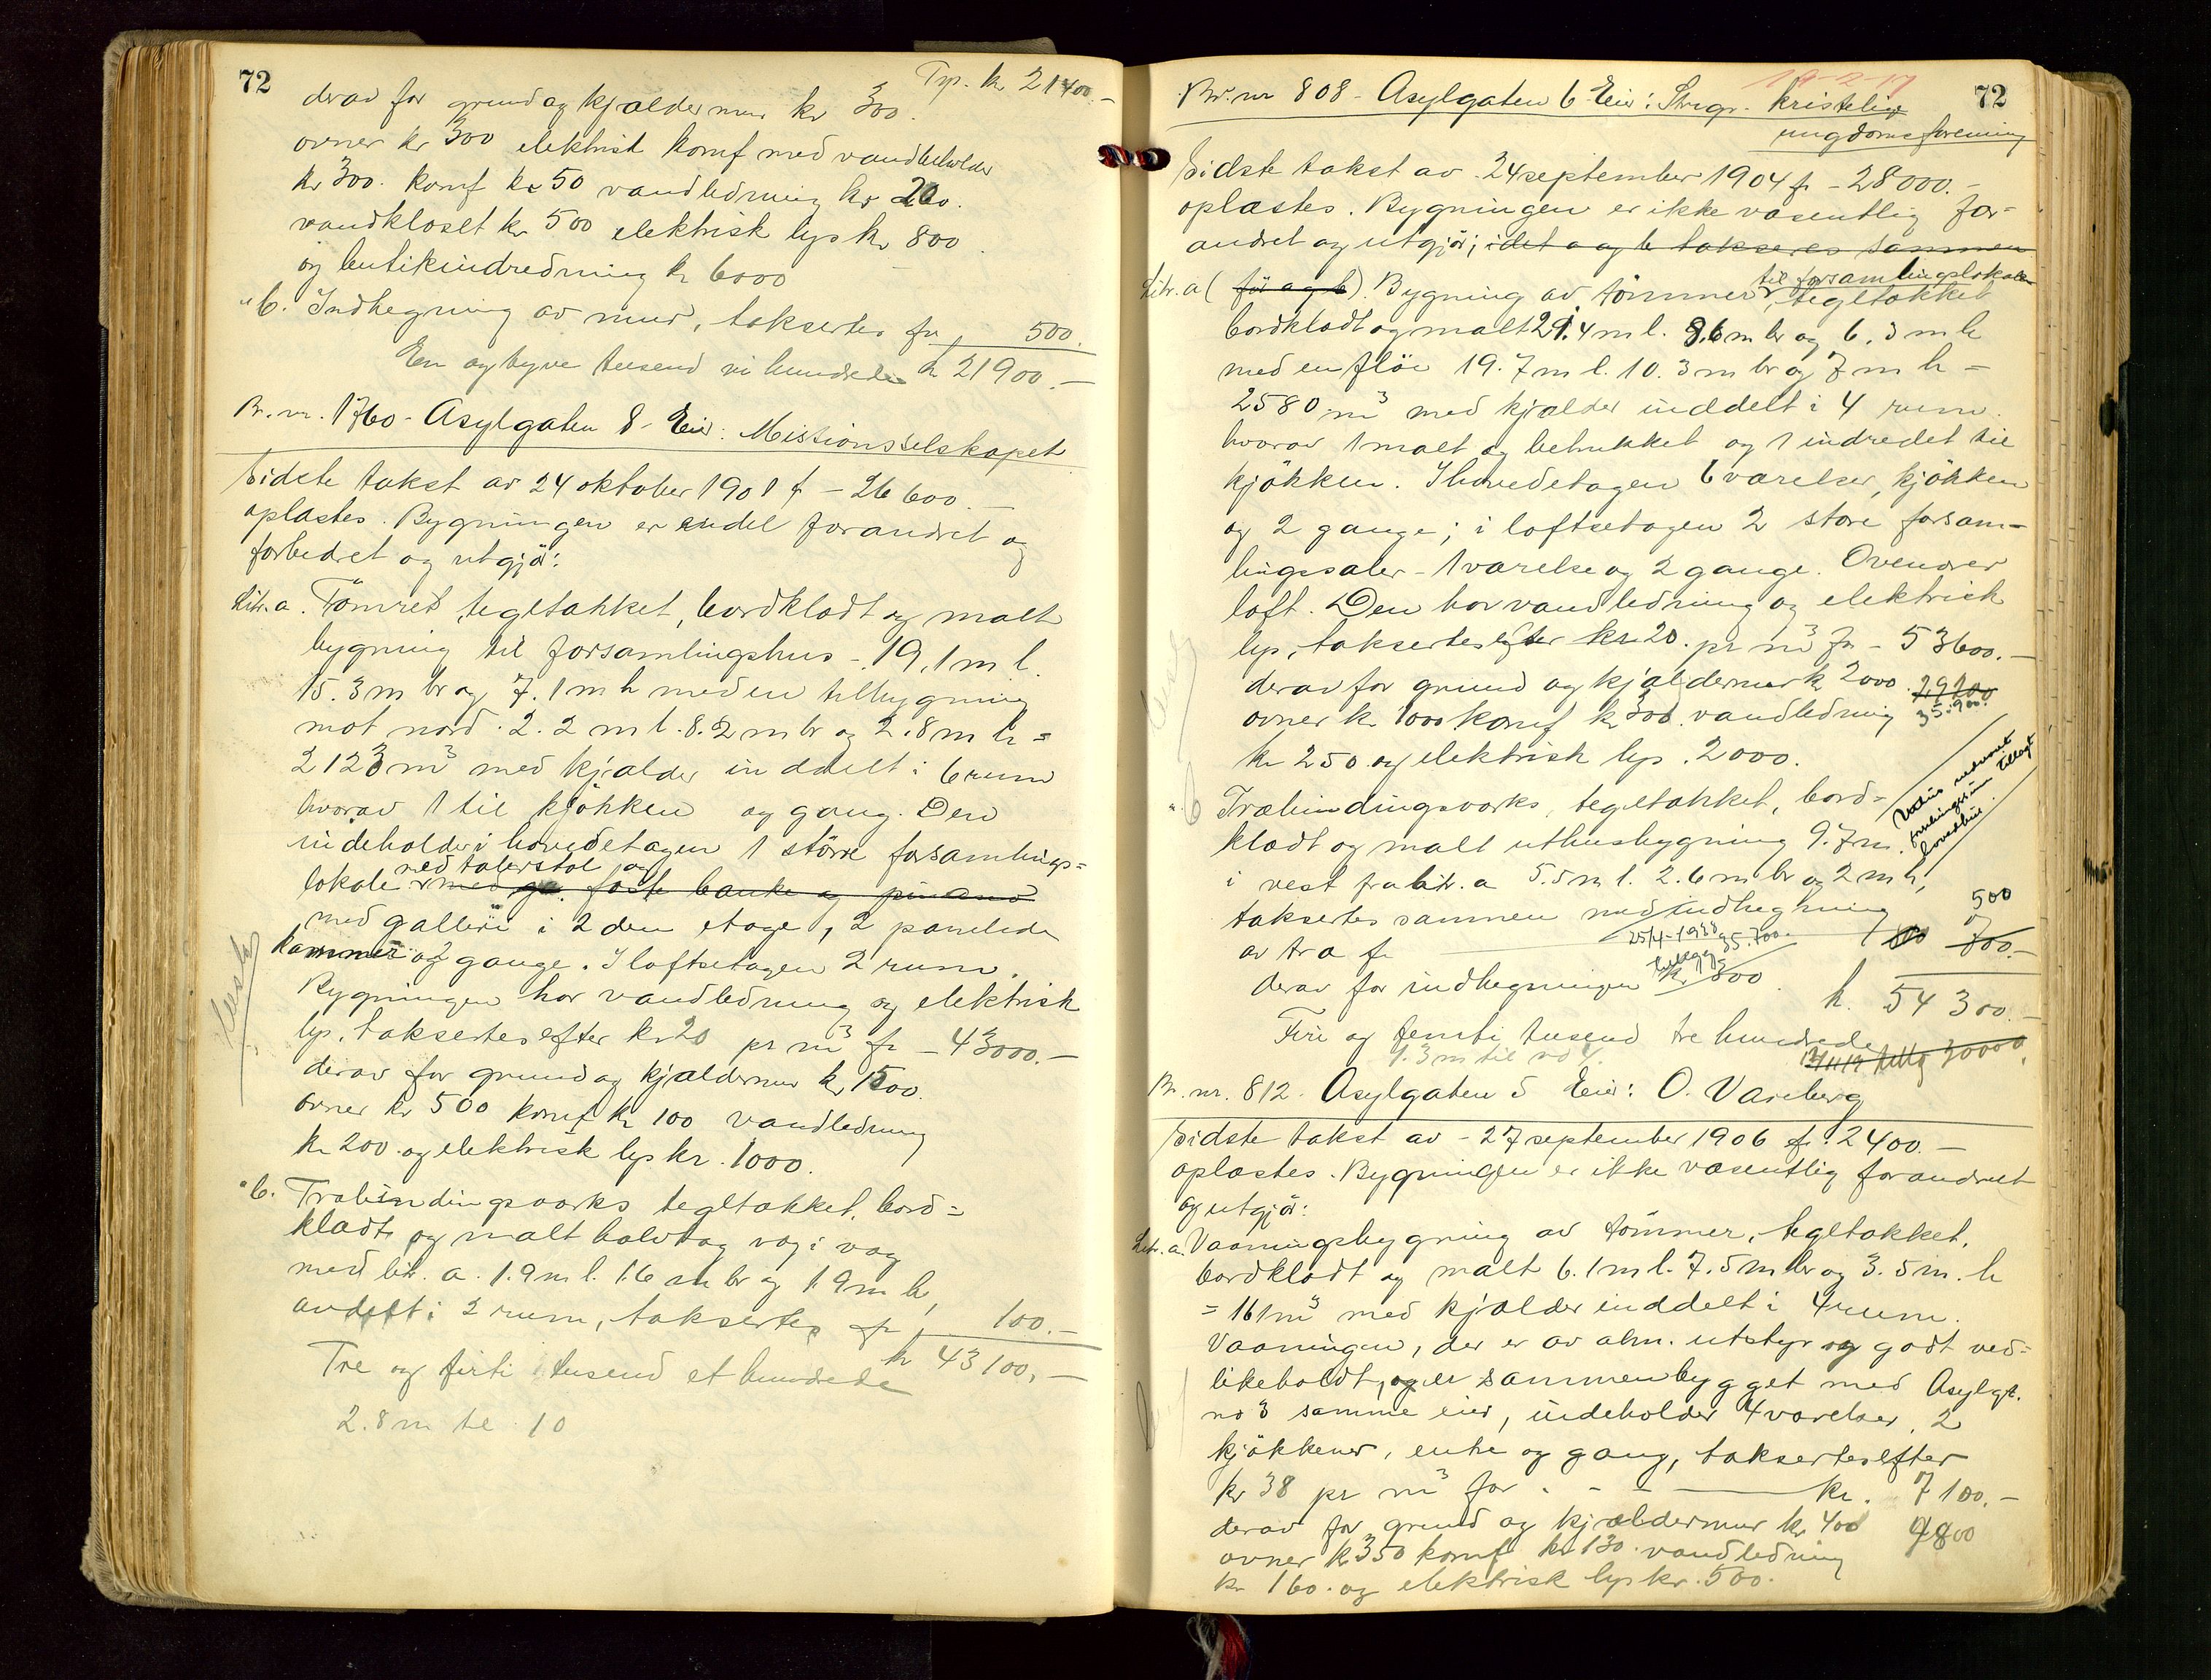 72
Trp. kr 21400.-
derav for grund og kjældermur kr 300.
ovner kr 300 elektrisk komf med vandbeholder
kr 300. komf kr 50 vandledning kr 200.
vandkloset kr 500 elektrisk lys kr 800
og butikindredning kr 6000
" b. Indhegning av mur, taksertes fr 500.
En og tyve tusend ni hundrede kr 21900.-
Br. nr. 1760 - Asylgaten 8 - Eier: Missionsselskapet
Sidste takst av 24 oktober 1901 fr - 26600.-
oplæstes. Bygningen er endel forandret og
forbedret og utgjör:
Litr. a. Tömret, tegltækket, bordklædt og malt
bygning til forsamlingshus - 19,1 m l.
15.3 m br og 7.1 m h med en tilbygning
mot nord 2.2 m l. 8.2 m br og 2.8 m h =
2123 m³ med kjælder inddelt i 6 rum
hvorav 1 til kjökken og gang. Den
indeholder i hovedetagen 1 större forsamlings=
med talerstol og
lokale med faste bænke og
med galleri i 2den etage, 2 panelede
kammer og 2 gange. I loftsetagen 2 rum.
Bygningen har vandledning og elektrisk
lys, taksertes efter kr 20 pr m³ fr - 43000.-
derav for grund og kjældermur kr 1500.
ovner kr 500 komf kr 100 vandledning
kr 200 og elektrisk lys kr. 1000.
" b. Træbindingsværks tegltækket, bord=
klædt og malt halvtag væg i væg
med litr. a. 1.9 m l. 1.6 m br og 1.9 m h,
avdelt i 2 rum, taksertes fr 100.-
kr 43100.-
Tre og firti tusend et hundrede
2.8 m til 10
19-2-17
72
Br. nr 808 - Asylgaten 6 Eier: Stvgr. kristelige
ungdomsforening
Sidste takst av 24 september 1904 fr - 28000.-
oplæstes. Bygningen er ikke væsentlig for=
andret og utgjör; idet a og b takseres sammen
til forsamlingslokale
Litr. a (för a og b). Bygning av tömmer, tegltækket
bordklædt og malt 21.4 m l. 8.6 m br og 6.3 m h
med en flöi 19.7 m l. 10.3 m br og 7 m h =
2580 m³ med kjælder inddelt i 4 rum.
hvorav 1 malt og betrukket og 1 indredet til
kjökken. I hovedetagen 6 værelser, kjökken
og 2 gange; i loftsetagen 2 store forsam=
lingssaler - 1 værelse og 2 gange. Ovenover
loft. Den har vandledning og elektrisk
lys, taksertes efter kr 20. pr m³ fr - 53600.-
derav for grund og kjældermur kr 2000. 29200
ovner kr 1000 komf kr 300. vandledning 35.900.
kr 250 og elektrisk lys. 2000.
" b Træbindingsværks, tegltækket, bord=
klædt og malt uthusbygning 9.7 m.
i vest fra litr. a 5.5 m l. 2.6 m br og 2 m h,
taksertes sammen med indhegning 500
av træ fr 700.-
25/4-1938 35.700.-
derav for indhegningen kr. 300.
kr. 54300.-
Fire og femti tusend tre hundrede
9.3 m til no 4.
tillæg 30000
Br. nr. 812. Asylgaten 5 Eier: O. Vareberg
Sidste takst av - 27 september 1906 fr. 2400.-
oplæstes. Bygningen er ikke væsentlig forandret
og utgjör:
Litr. a. Vaaningsbygning av tömmer, tegltækket,
bordklædt og malt 6.1 m l. 7.5 m br og 3.5 m. h
= 161 m³ med kjælder inddelt i 4 rum.
Vaaningen, der er av alm. utstyr og godt ved=
likeholdt, og er sammenbygget med Asylgt.
no 3 samme eier, indeholder 4 værelser, 2
kjökkener, entre og gang, taksertes efter
kr 38 pr m³ for - - - kr. 7100.-
derav for grund og kjældermur kr 400 9800
ovner kr 350 komf kr 130. vandledning
kr 160. og elektrisk lys kr. 500.